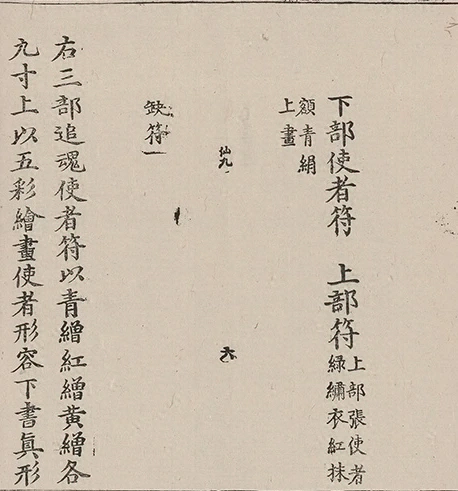 下部使者符　上部符上部張使者
綠繡衣紅抹
額青絹
上畫
仙九　六
缺符一
右三部追魂使者符以青繒紅繒黃繒各
九寸上以五彩繪畫使者形容下書眞形